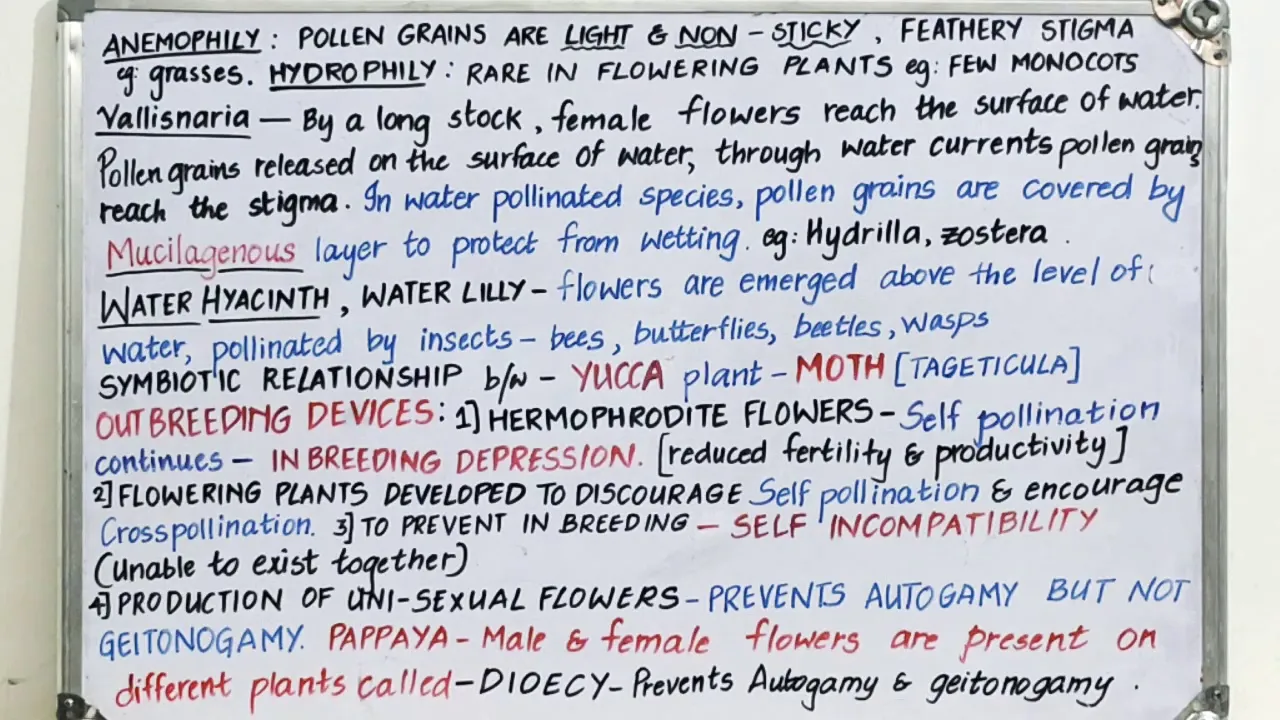 ANEMOPHILY : POLLEN GRAINS ARE LIGHT & NON - STICKY , FEATHERY STIGMA
eg: grasses. HYDROPHILY : RARE IN FLOWERING PLANTS eg: FEW MONOCOTS
Vallisnaria — By a long stock , female flowers reach the surface of water.
Pollen grains released on the surface of water, through water currents pollen grains
reach the stigma. In water pollinated species, pollen grains are covered by
Mucilagenous layer to protect from wetting. eg: Hydrilla, zostera .
WATER HYACINTH , WATER LILLY - flowers are emerged above the level of
water, pollinated by insects - bees, butterflies, beetles, wasps
SYMBIOTIC RELATIONSHIP b/w - YUCCA plant - MOTH [TAGETICULA]
OUT BREEDING DEVICES: 1] HERMOPHRODITE FLOWERS - Self pollination
continues - IN BREEDING DEPRESSION. [reduced fertility & productivity]
2] FLOWERING PLANTS DEVELOPED TO DISCOURAGE Self pollination & encourage
Crosspollination. 3] TO PREVENT IN BREEDING - SELF INCOMPATIBILITY
(unable to exist together)
4] PRODUCTION OF UNI-SEXUAL FLOWERS - PREVENTS AUTOGAMY BUT NOT
GEITONOGAMY. PAPPAYA - Male & female flowers are present on
different plants called - DIOECY - Prevents Autogamy & geitonogamy .